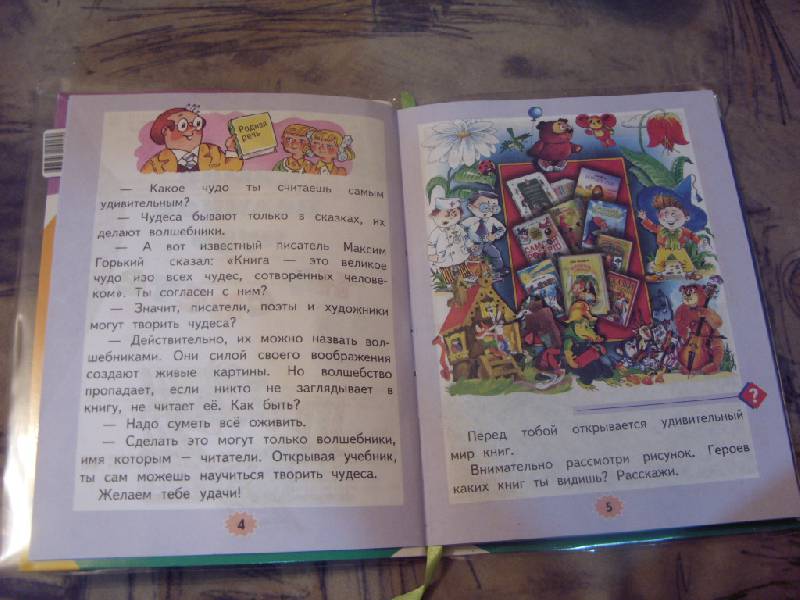 Родная
речь
— Какое чудо ты считаешь самым
удивительным?
— Чудеса бывают только в сказках, их
делают волшебники.
— А вот известный писатель Максим
Горький сказал: «Книга — это великое
чудо изо всех чудес, сотворённых челове-
ком». Ты согласен с ним?
— Значит, писатели, поэты и художники
могут творить чудеса?
— Действительно, их можно назвать вол-
шебниками. Они силой своего воображения
создают живые картины. Но волшебство
пропадает, если никто не заглядывает в
книгу, не читает её. Как быть?
— Надо суметь всё оживить.
— Сделать это могут только волшебники,
имя которым — читатели. Открывая учебник,
ты сам можешь научиться творить чудеса.
Желаем тебе удачи!
4
?
Перед тобой открывается удивительный
мир книг.
Внимательно рассмотри рисунок. Героев
каких книг ты видишь? Расскажи.
5